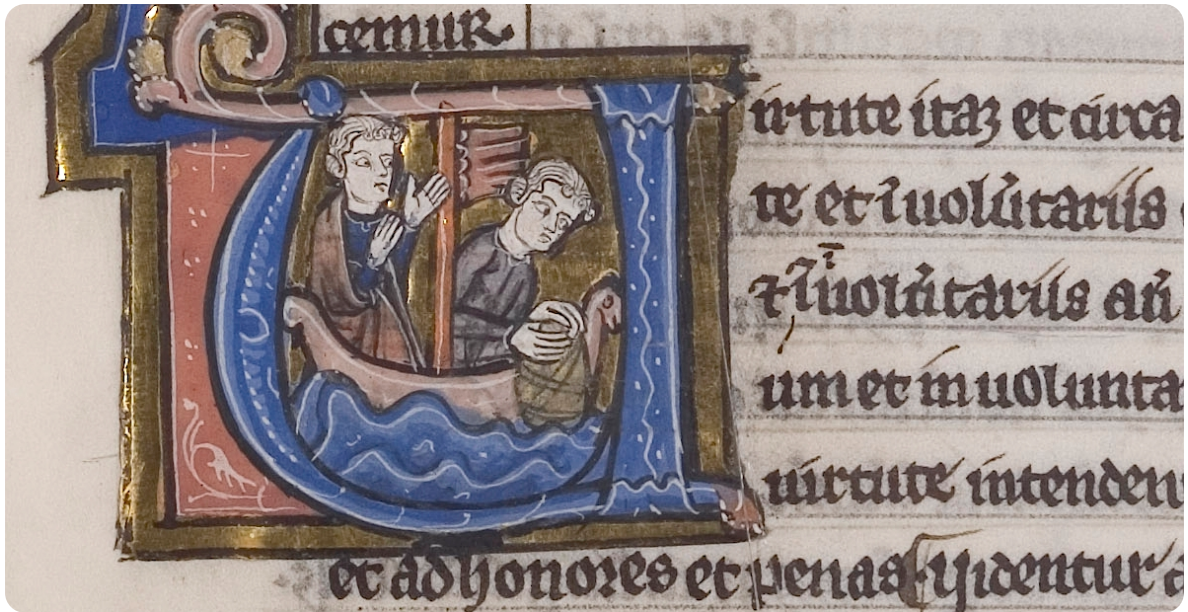 cemur.
Uirtute itaꝫ et circa
te et ī uolūtariis
⁊ ī uolūtariis an̄
um et in uolunta
uirtute intenden
et ad honores et penas